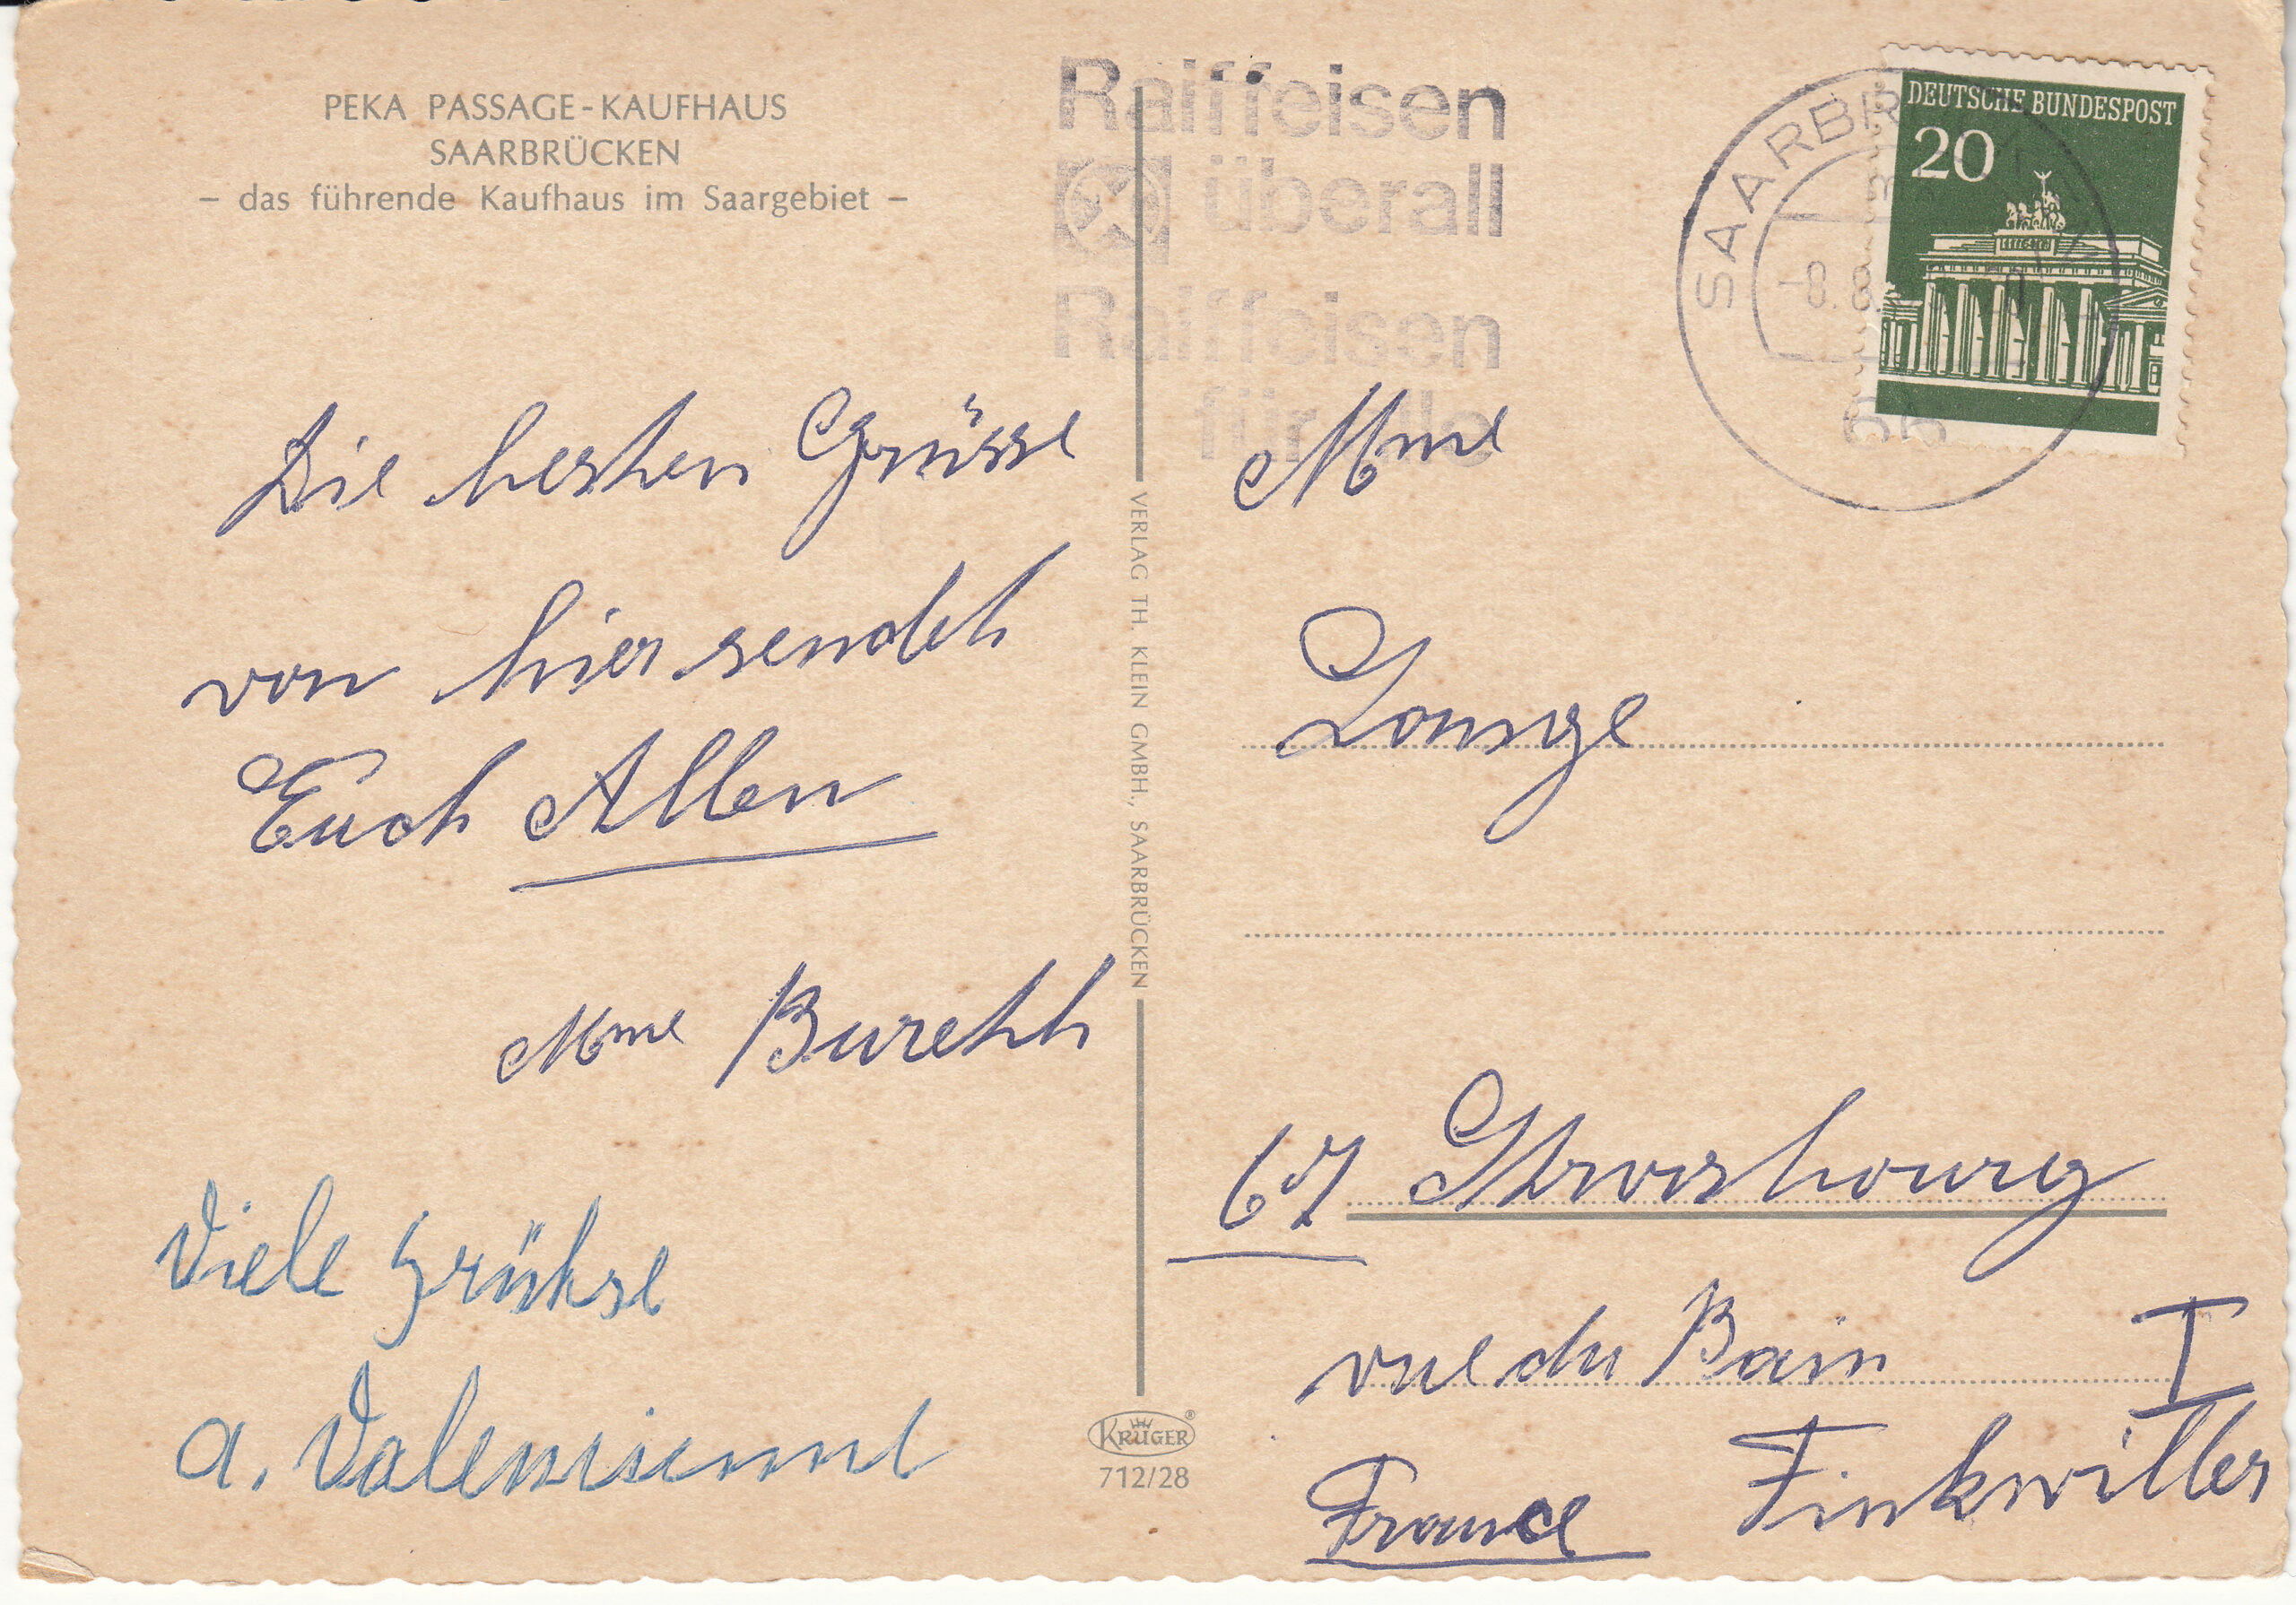 PEKA PASSAGE-KAUFHAUS
SAARBRÜCKEN
– das führende Kaufhaus im Saargebiet –
Die besten Grüsse
von hier sendet
Euch Allen
Mme Buret
Viele Grüße
a. Valensienne
Raiffeisen
überall
Raiffeisen
für alle
SAARBRÜCKEN
-8.8.
66
DEUTSCHE BUNDESPOST
20
VERLAG TH. KLEIN GMBH., SAARBRÜCKEN
KRÜGER ®
712/28
Mme
Lange
67 Strasbourg
rue du Bain
I
Finkwiller
France